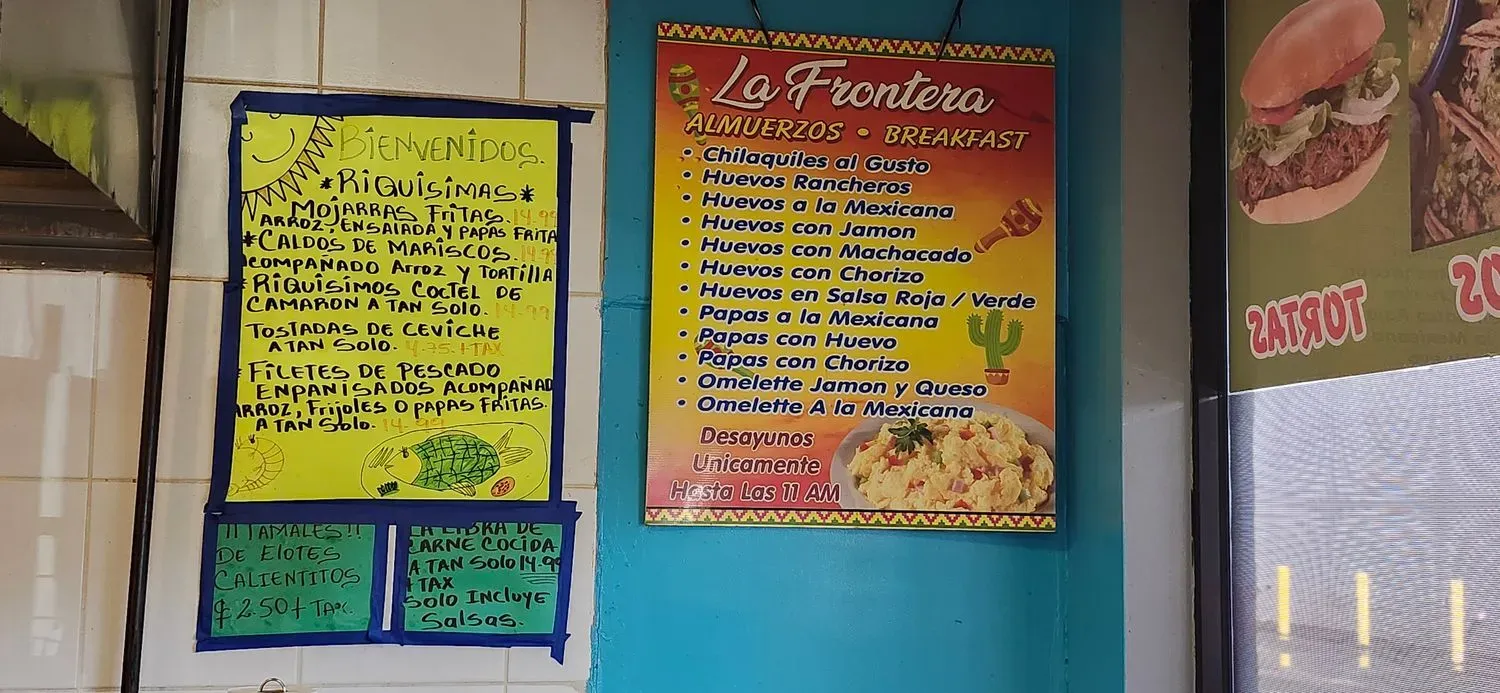 BIENVENIDOS.
*RIQUISIMAS*
MOJARRAS FRITAS. 14.99
ARROZ, ENSALADA Y PAPAS FRITA
*CALDOS DE MARISCOS.
ACOMPAÑADO Arroz Y TORTILLA
RIQUISIMOS COCTEL DE
CAMARON A TAN SOLO. 14.99
TOSTADAS DE CEVICHE
A TAN SOLO. 4.75.+TAX
FILETES DE PESCADO
EMPANISADOS ACOMPAÑAD
ARROZ, Frijoles O PAPAS FRITAS.
A TAN SOLO. 14.99
!!TAMALES!!
DE ELOTES
CALIENTITOS
$2.50+TAX.
LA LIBRA DE
CARNE COCIDA
A TAN SOLO 14.99
+TAX
SOLO INCLUYE
SALSAS.
La Frontera
ALMUERZOS • BREAKFAST
• Chilaquiles al Gusto
• Huevos Rancheros
• Huevos a la Mexicana
• Huevos con Jamon
• Huevos con Machacado
• Huevos con Chorizo
• Huevos en Salsa Roja / Verde
• Papas a la Mexicana
• Papas con Huevo
• Papas con Chorizo
• Omelette Jamon y Queso
• Omelette A la Mexicana
Desayunos
Unicamente
Hasta Las 11 AM
TORTAS